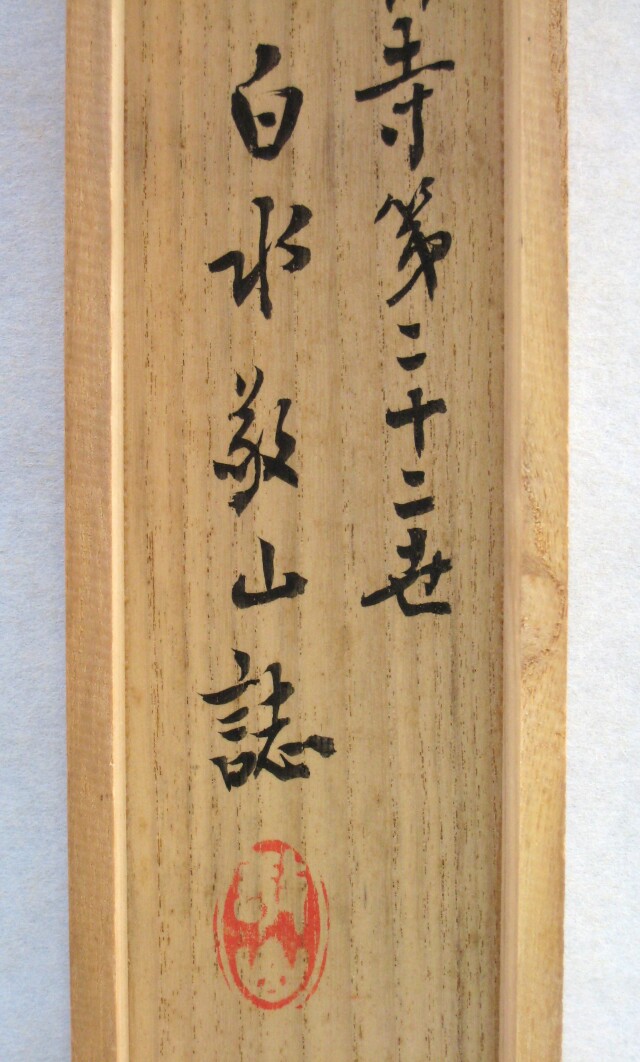 寺第二十二世
白水敬山誌